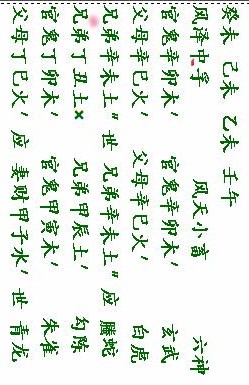 癸未 己未 乙未 壬午
风泽中孚 风天小畜 六神
官鬼辛卯木′ 官鬼辛卯木′ 玄武
父母辛巳火′ 父母辛巳火′ 白虎
兄弟辛未土″ 世 兄弟辛未土″ 应 螣蛇
兄弟丁丑土× 兄弟甲辰土′ 勾陈
官鬼丁卯木′ 官鬼甲寅木′ 朱雀
父母丁巳火′ 应 妻财甲子水′ 世 青虎